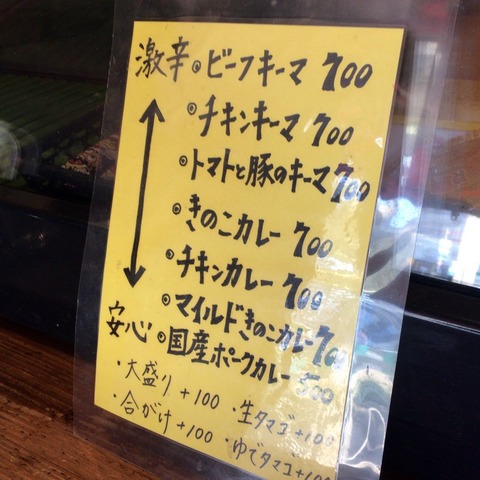 激辛 ◎ビーフキーマ 700
◎チキンキーマ 700
◎トマトと豚のキーマ 700
◎きのこカレー 700
◎チキンカレー 700
◎マイルドきのこカレー 700
安心 ◎国産ポークカレー 500
・大盛り +100 ・生タマゴ+100
・合がけ+100 ・ゆでタマゴ+100